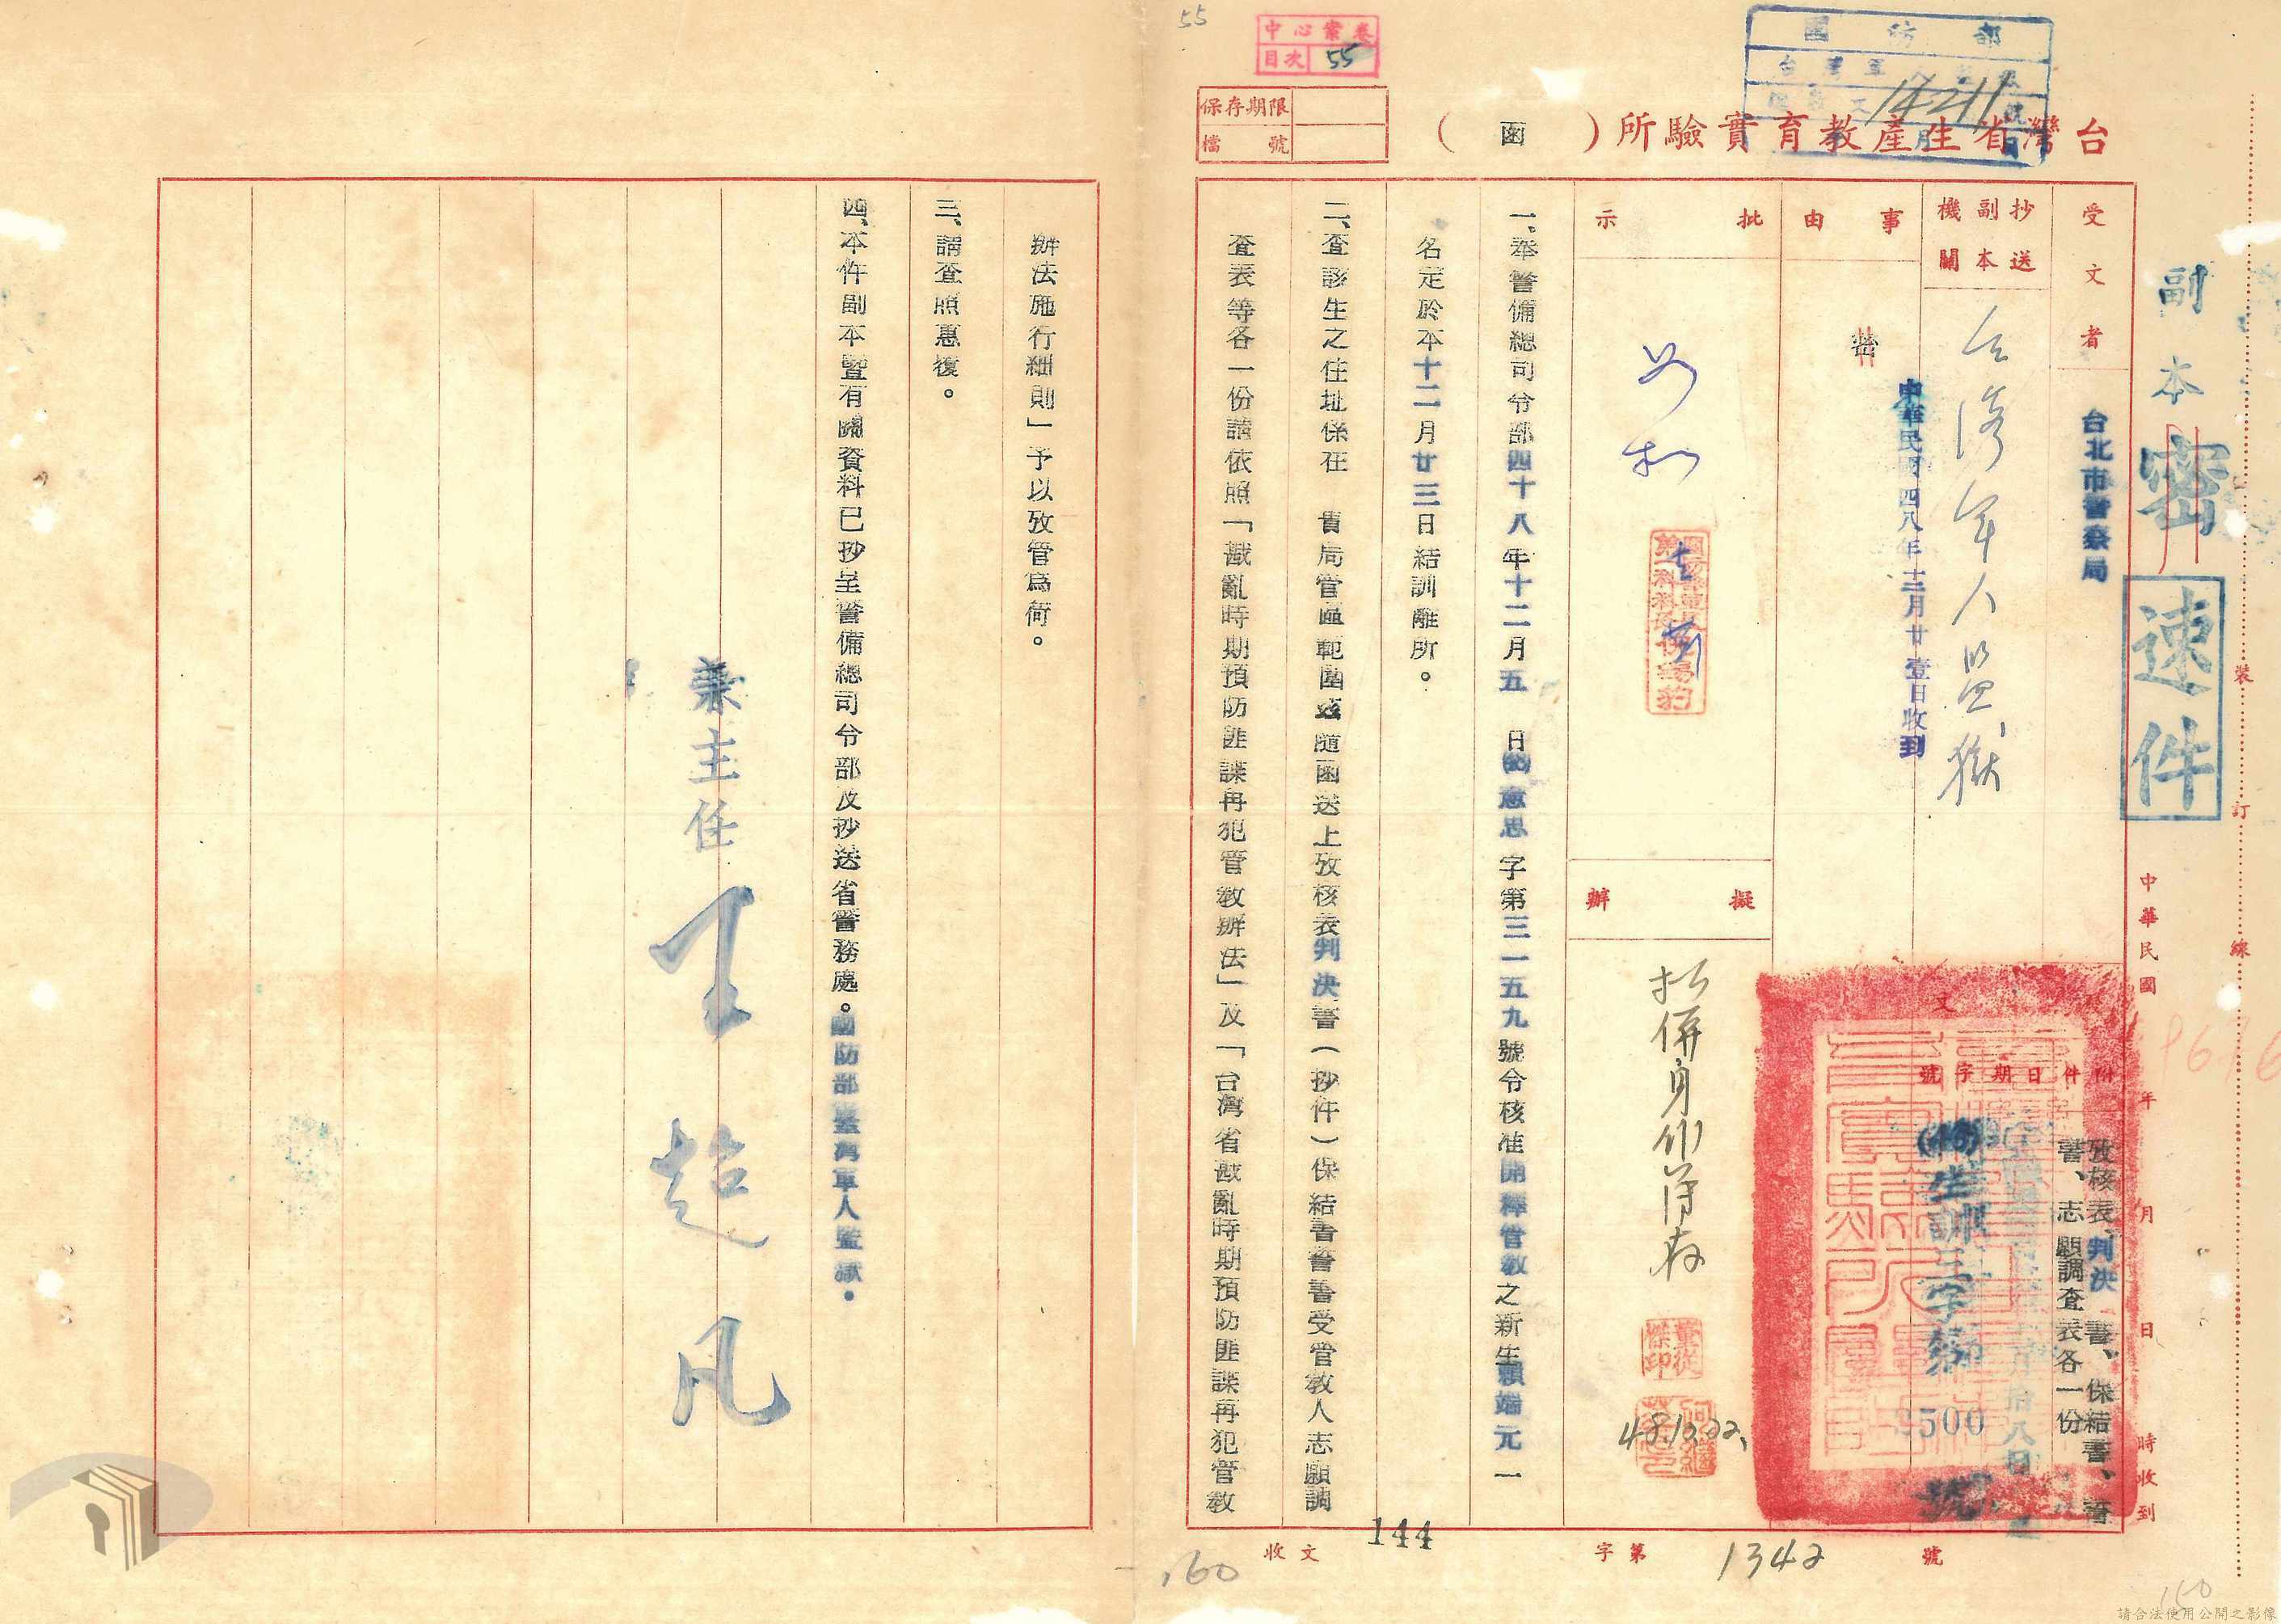 55
中心案卷
目次 55
國防部
14211
保存期限
檔號
台灣省生產教育實驗所（函）
副本
密
速件
受文者
台北市警察局
抄送副本機關
台灣軍人監獄
中華民國四八年十二月廿壹日收到
事由
批示
如擬
擬辦
擬併身份簿存
48.12.22.
文
附件日期字號
攷核表、判決書、保結書、誓
書、志願調查表各一份
生訓三字第
號
中華民國年月日時收到
裝訂線
一、奉警備總司令部四十八年十二月五日 字第三一五九號令核准開釋管教之新生賴端元一
名定於本十二月廿三日結訓離所。
二、查該生之住址係在 貴局管區範圍茲隨函送上攷核表判決書（抄件）保結書誓書受管教人志願調
查表等各一份請依照「戡亂時期預防匪諜再犯管教辦法」及「台灣省戡亂時期預防匪諜再犯管教
辦法施行細則」予以攷管爲荷。
三、請查照惠復。
四、本件副本暨有關資料已抄呈警備總司令部及抄送省警務處。國防部臺灣軍人監獄。
兼主任 王超凡
收文
144
字第 1342 號
160
150
請合法使用公開之影像